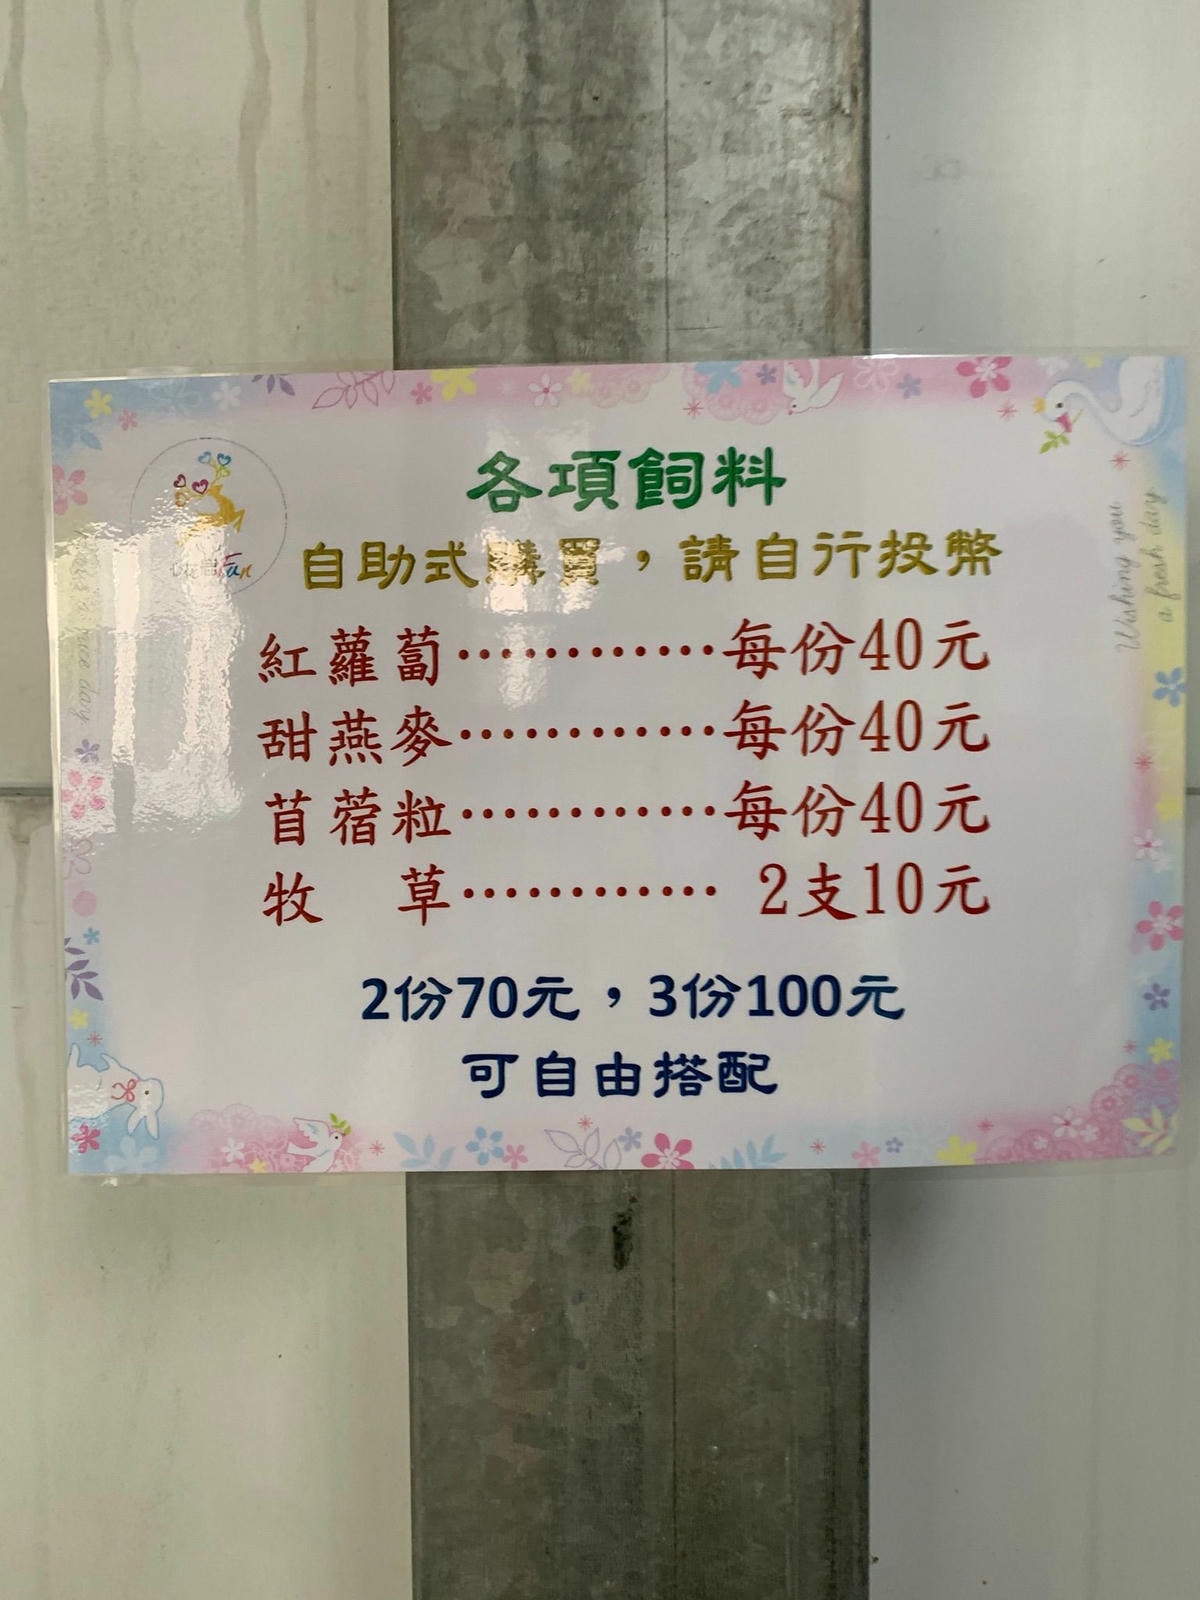 各項飼料
自助式購買，請自行投幣
紅蘿蔔…………每份40元
甜燕麥…………每份40元
苜蓿粒…………每份40元
牧 草………… 2支10元
2份70元，3份100元
可自由搭配
Wishing you
a fresh day
Fun